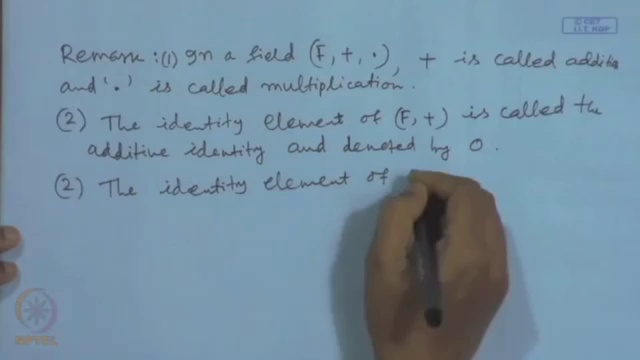 © CET
I.I.T. KGP
Remark : (1) In a field (F, +, ·), + is called additio
and '·' is called multiplication.
(2) The identity element of (F, +) is called the
additive identity and denoted by 0.
(2) The identity element of
NPTEL